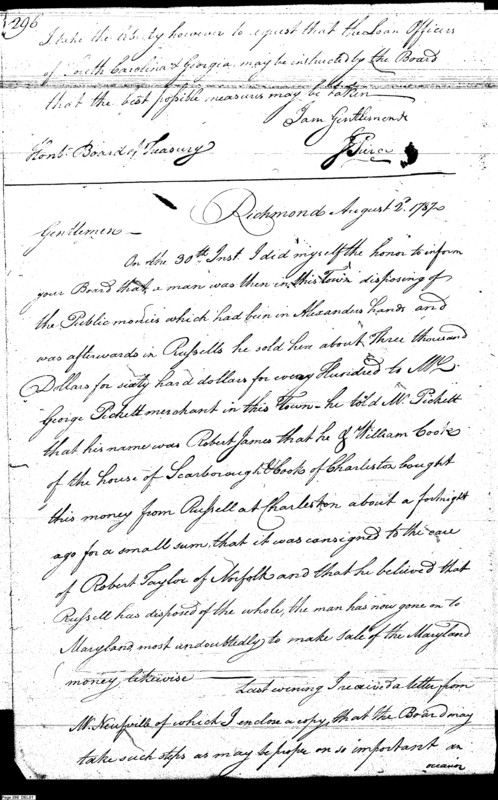 296
I take the liberty however to request that the Loan Officers
of South Carolina & Georgia may be instructed by the Board
that the best possible measures may be taken
I am Gentlemen &
Honbl. Board of Treasury J Pierce
Richmond August 2d. 1787
Gentlemen —
On the 30th Inst. I did myself the honor to inform
your Board that a man was then in this Town disposing of
the Public monies which had been in Alexanders hands and
was afterwards in Russells he sold here about Three thousand
Dollars for sixty hard dollars for every Hundred to Mr.
George Pickett merchant in this Town — he told Mr. Pickett
that his name was Robert James that he & William Cook
of the house of Scarborough & Cook of Charleston bought
this money from Russell at Charleston about a fortnight
ago for a small sum, that it was consigned to the care
of Robert Taylor of Norfolk and that he believed that
Russell has disposed of the whole, the man has now gone on to
Maryland most undoubtedly to make sale of the Maryland
money likewise —
Last evening I received a letter from
Mr. Neufville of which I enclose a copy, that the Board may
take such steps as may be proper on so important an
occasion
Page 296